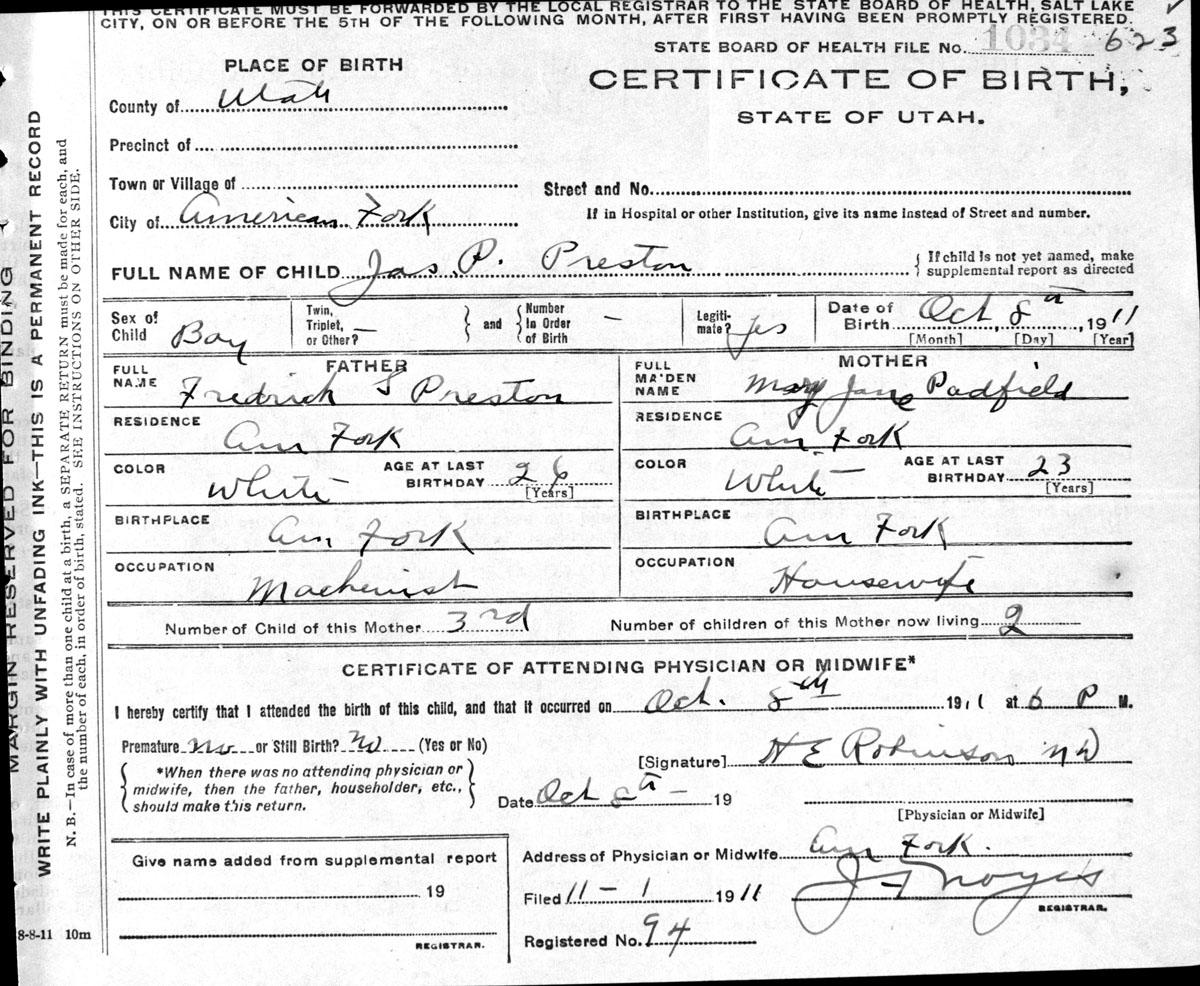 THIS CERTIFICATE MUST BE FORWARDED BY THE LOCAL REGISTRAR TO THE STATE BOARD OF HEALTH, SALT LAKE
CITY, ON OR BEFORE THE 5TH OF THE FOLLOWING MONTH, AFTER FIRST HAVING BEEN PROMPTLY REGISTERED.
STATE BOARD OF HEALTH FILE No. 1034 623
PLACE OF BIRTH
CERTIFICATE OF BIRTH,
STATE OF UTAH.
County of Utah
Precinct of
Town or Village of
Street and No.
City of American Fork
If in Hospital or other Institution, give its name instead of Street and number.
FULL NAME OF CHILD Jas. P. Preston
{ If child is not yet named, make
supplemental report as directed
Sex of Child Boy
Twin, Triplet, or Other? —
and
Number In Order of Birth —
Legiti-mate? yes
Date of Birth Oct 8th, 1911
[Month] [Day] [Year]
FATHER
MOTHER
FULL NAME Fredrich S Preston
FULL MAIDEN NAME Mary Jane Padfield
RESIDENCE Am Fork
RESIDENCE Am Fork
COLOR White AGE AT LAST BIRTHDAY 26 [Years]
COLOR White AGE AT LAST BIRTHDAY 23 [Years]
BIRTHPLACE Am Fork
BIRTHPLACE Am Fork
OCCUPATION Machenist
OCCUPATION Housewife
Number of Child of this Mother 3rd
Number of children of this Mother now living 2
CERTIFICATE OF ATTENDING PHYSICIAN OR MIDWIFE*
I hereby certify that I attended the birth of this child, and that it occurred on Oct. 8th 1911 at 6 P M.
Premature No or Still Birth? No (Yes or No)
*When there was no attending physician or
midwife, then the father, householder, etc.,
should make this return.
[Signature] H E Robinson MD
Date Oct 8th — 19
[Physician or Midwife]
Give name added from supplemental report
19
REGISTRAR.
Address of Physician or Midwife Am Fork.
Filed 11 – 1 1911
J F Noyes
REGISTRAR.
Registered No. 94
8-8-11 10m
MARGIN RESERVED FOR BINDING
WRITE PLAINLY WITH UNFADING INK—THIS IS A PERMANENT RECORD
N. B.—In case of more than one child at a birth, a SEPARATE RETURN must be made for each, and
the number of each, in order of birth, stated. SEE INSTRUCTIONS ON OTHER SIDE.